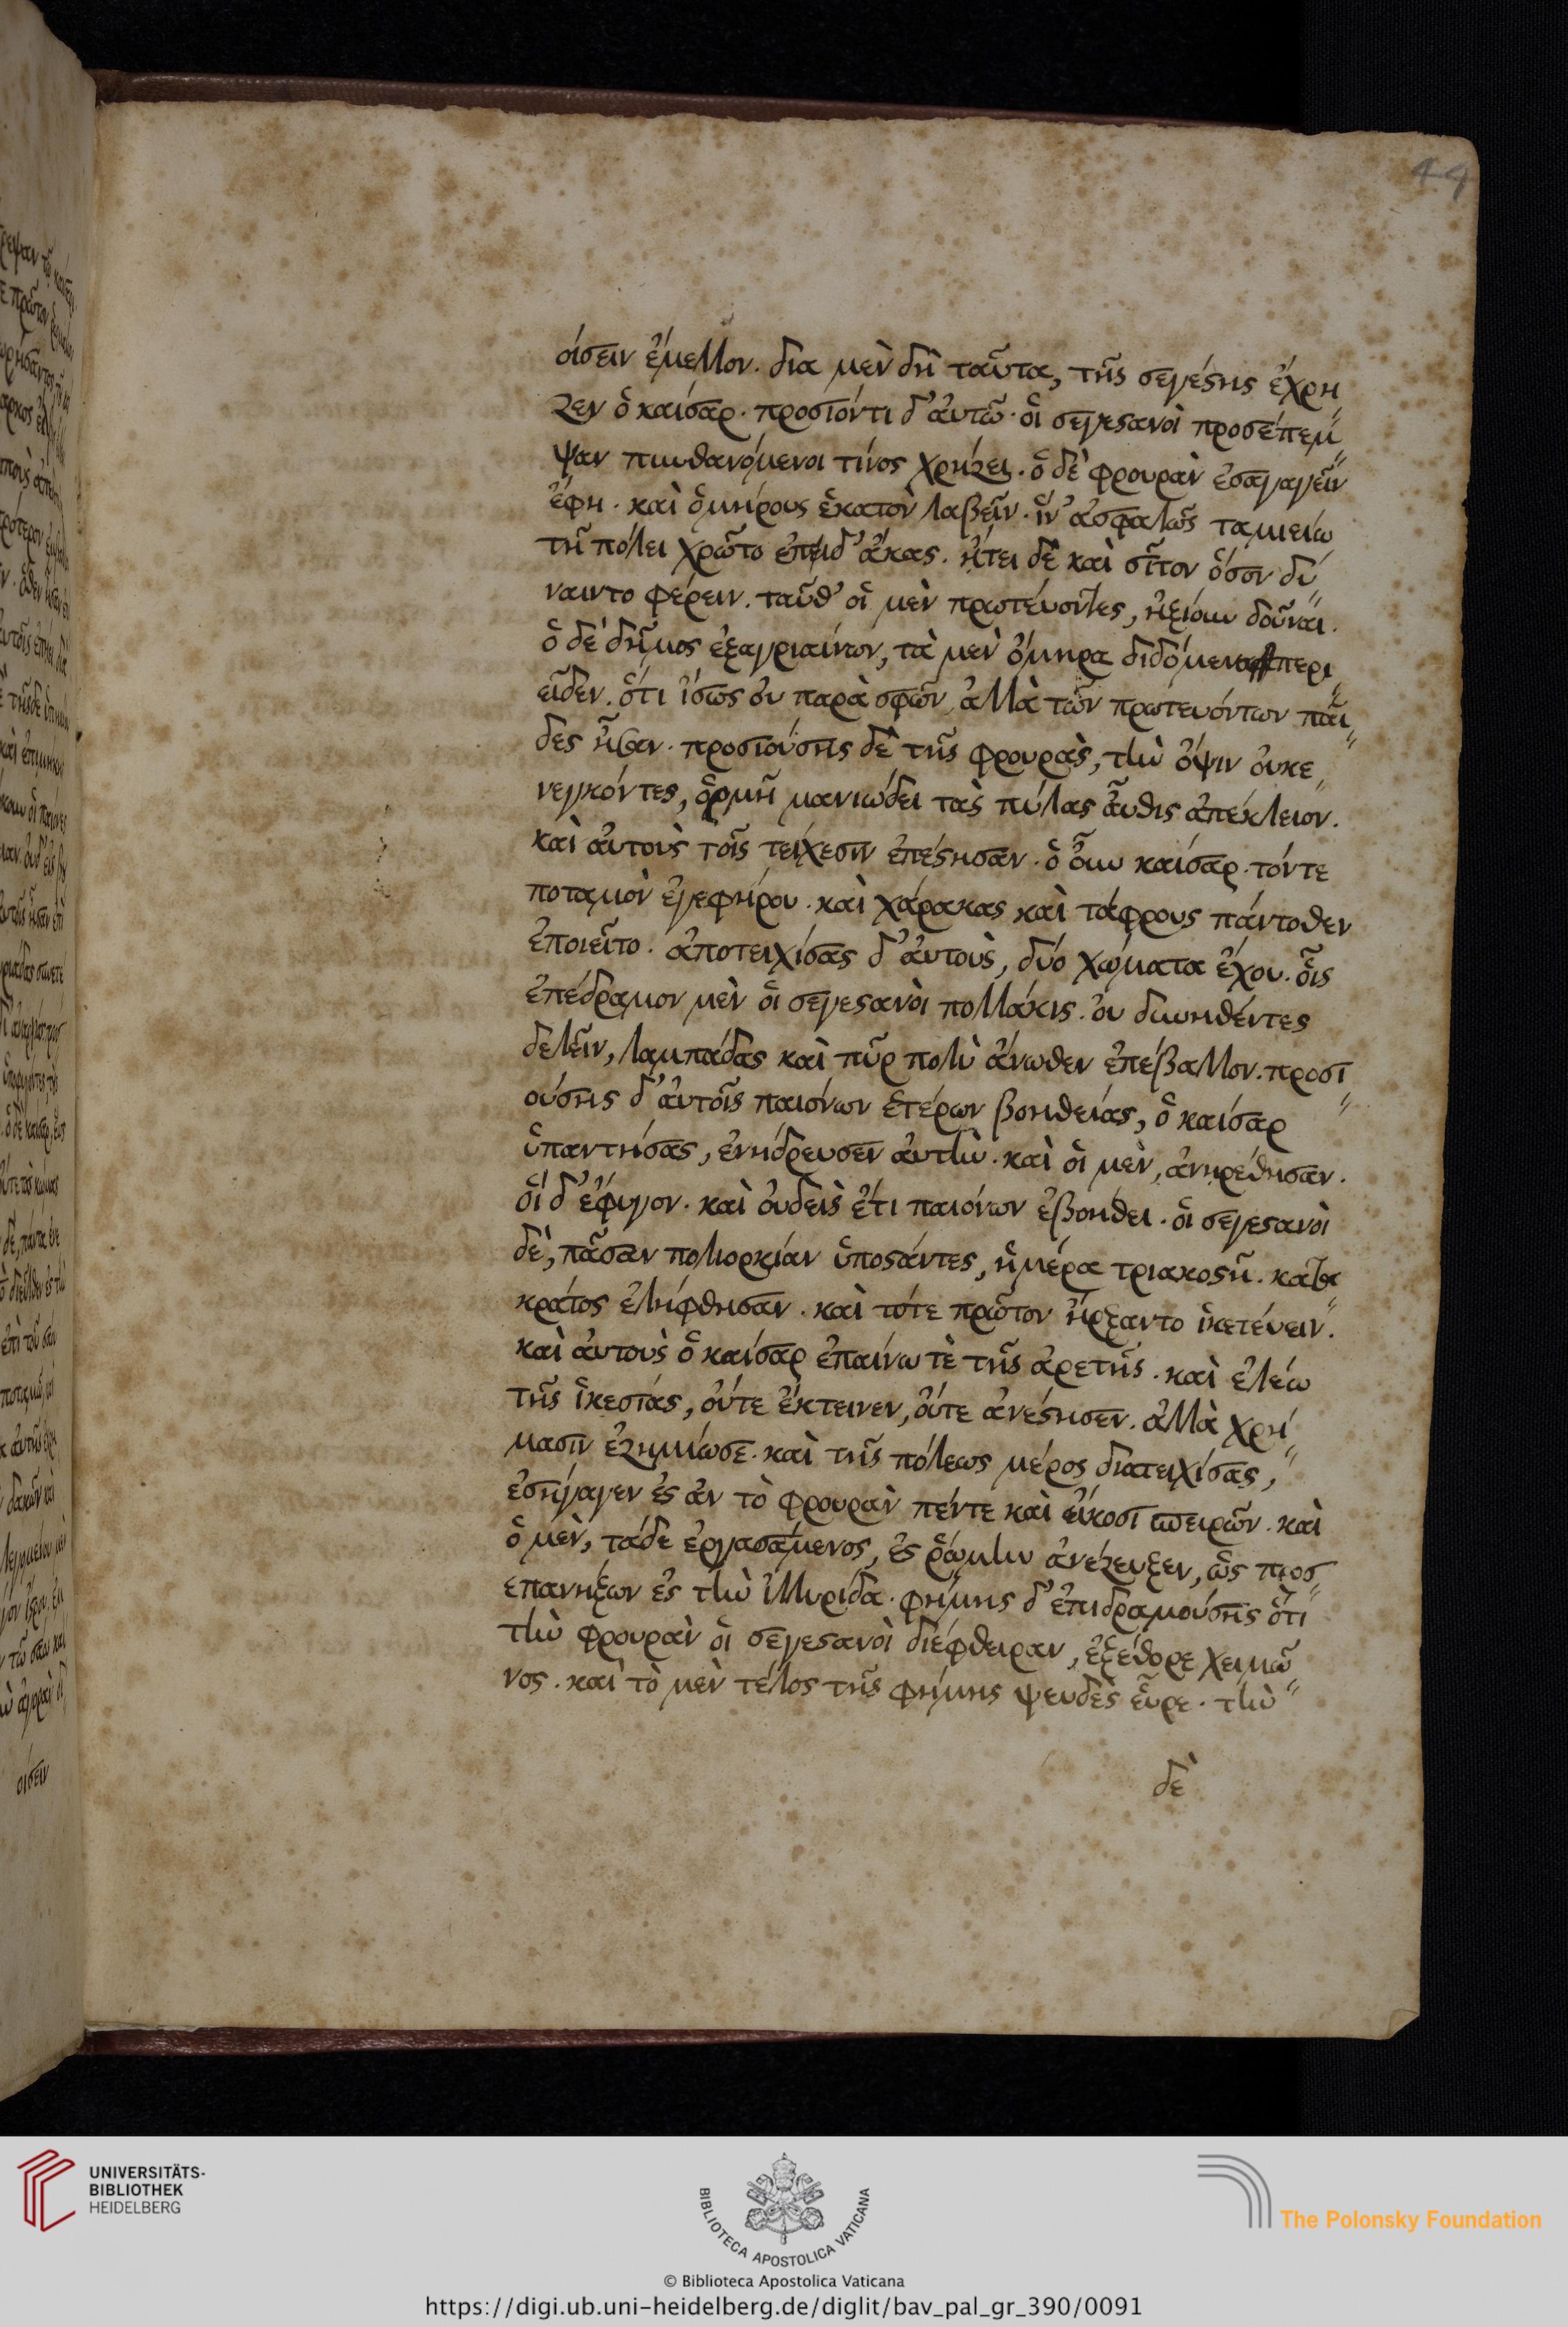 44
οίσειν ἐμελλον. δια μὲν δὴ ταῦτα, τῆς σεγέστης ἐχρη
ζεν ὁ καίσαρ. προσιόντι δ' ἀυτῶ. ὁι σεγεστανοὶ προσέπεμ
ψαν πυνθανόμενοι τίνος χρήζει. ὁ δὲ φρουρὰν ἐσαγαγεῖν
ἔφη. καὶ ὁμήρους ἑκατὸν λαβεῖν. ἵν' ἀσφαλῶς ταμιείω
τῆ πόλει χρῶτο ἐπειδ' ἄκας. ἤτει δὲ καὶ σῖτον ὅσον δύ
ναιντο φέρειν. ταῦθ' οἱ μὲν πρωτέυοντες, ἠξίουν δοῦναι.
ὁ δὲ δῆμος ἐξαγριαίνων, τὰ μὲν ὅμηρα διδόμενα περι
εῖδεν. ὅτι ἴσως ὀυ παρὰ σφῶν, ἀλλὰ τῶν πρωτευόντων παῖ
δες ἦσαν. προσιούσης δὲ τῆς φρουρὰς, τὴν ὄψιν ὀυκε
νεγκόντες, ὁρμῆ μανιώδει τὰς πύλας ἆυθις ἀπέκλειον.
καὶ ἀυτοὺς τοῖς τείχεσιν ἐπέστησαν. ὁ ὄυν καίσαρ. τόντε
ποταμὸν ἐγεφήρου. καὶ χάρακας καὶ τάφρους πάντοθεν
ἐποιεῖτο. ἀποτειχίσας δ' ἀυτοὺς, δύο χώματα ἔχου. ὃις
ἐπέδραμον μὲν ὁι σεγεστανὸι πολλάκις. ὀυ δυνηθέντες
δελεῖν, λαμπάδας καὶ πῦρ πολὺ ἄνωθεν ἐπέβαλλον. προσι
ούσης δ' ἀυτοῖς παιόνων ἑτέρων βοηθείας, ὁ καίσαρ
ὑπαντήσας, ἐνήδρευσεν ἀυτὴν. καὶ ὁι μὲν, ἀνηρέθησαν.
ὁί δ' ἔφυγον. καὶ ὀυδεὶς ἔτι παιόνων ἐβοήθει. ὁι σεγεστανὸι
δὲ, πᾶσαν πολιορκίαν ὑποστάντες, ἡμέρα τριακοστῆ. κατα
κράτος ἐλήφθησαν. καὶ τότε πρῶτον ἤρξαντο ἱκετέυειν.
καὶ ἀυτοὺς ὁ καίσαρ ἐπαίνω τὲ τῆς ἀρετῆς. καὶ ἐλέω
τῆς ἱκεσίας, ὄυτε ἔκτεινεν, ὄυτε ἀνέστησεν. ἀλλὰ χρή
μασιν ἐζημίωσε. καὶ τῆς πόλεως μέρος διατειχίσας,
ἐσήγαγεν ἐς ἀν τὸ φρουρὰν πέντε καὶ ἐίκοσι σπειρῶν. καὶ
ὁ μὲν, τάδε ἐργασάμενος, ἐς ῥώμην ἀνέζευξεν, ὡς προσ
επανήξων ἐς τὴν ἰλλυρίδα. φήμης δ' ἐπιδραμούσης ὅτι
τὴν φρουρὰν ὁι σεγεστανὸι διέφθειραν, ἐξέθορε χειμῶ
νος. καὶ τὸ μὲν τέλος τῆς φήμης ψευδὲς εὗρε. τὴν
δὲ
οίσειν
UNIVERSITÄTS-
BIBLIOTHEK
HEIDELBERG
BIBLIOTECA APOSTOLICA VATICANA
The Polonsky Foundation
© Biblioteca Apostolica Vaticana
https://digi.ub.uni-heidelberg.de/diglit/bav_pal_gr_390/0091